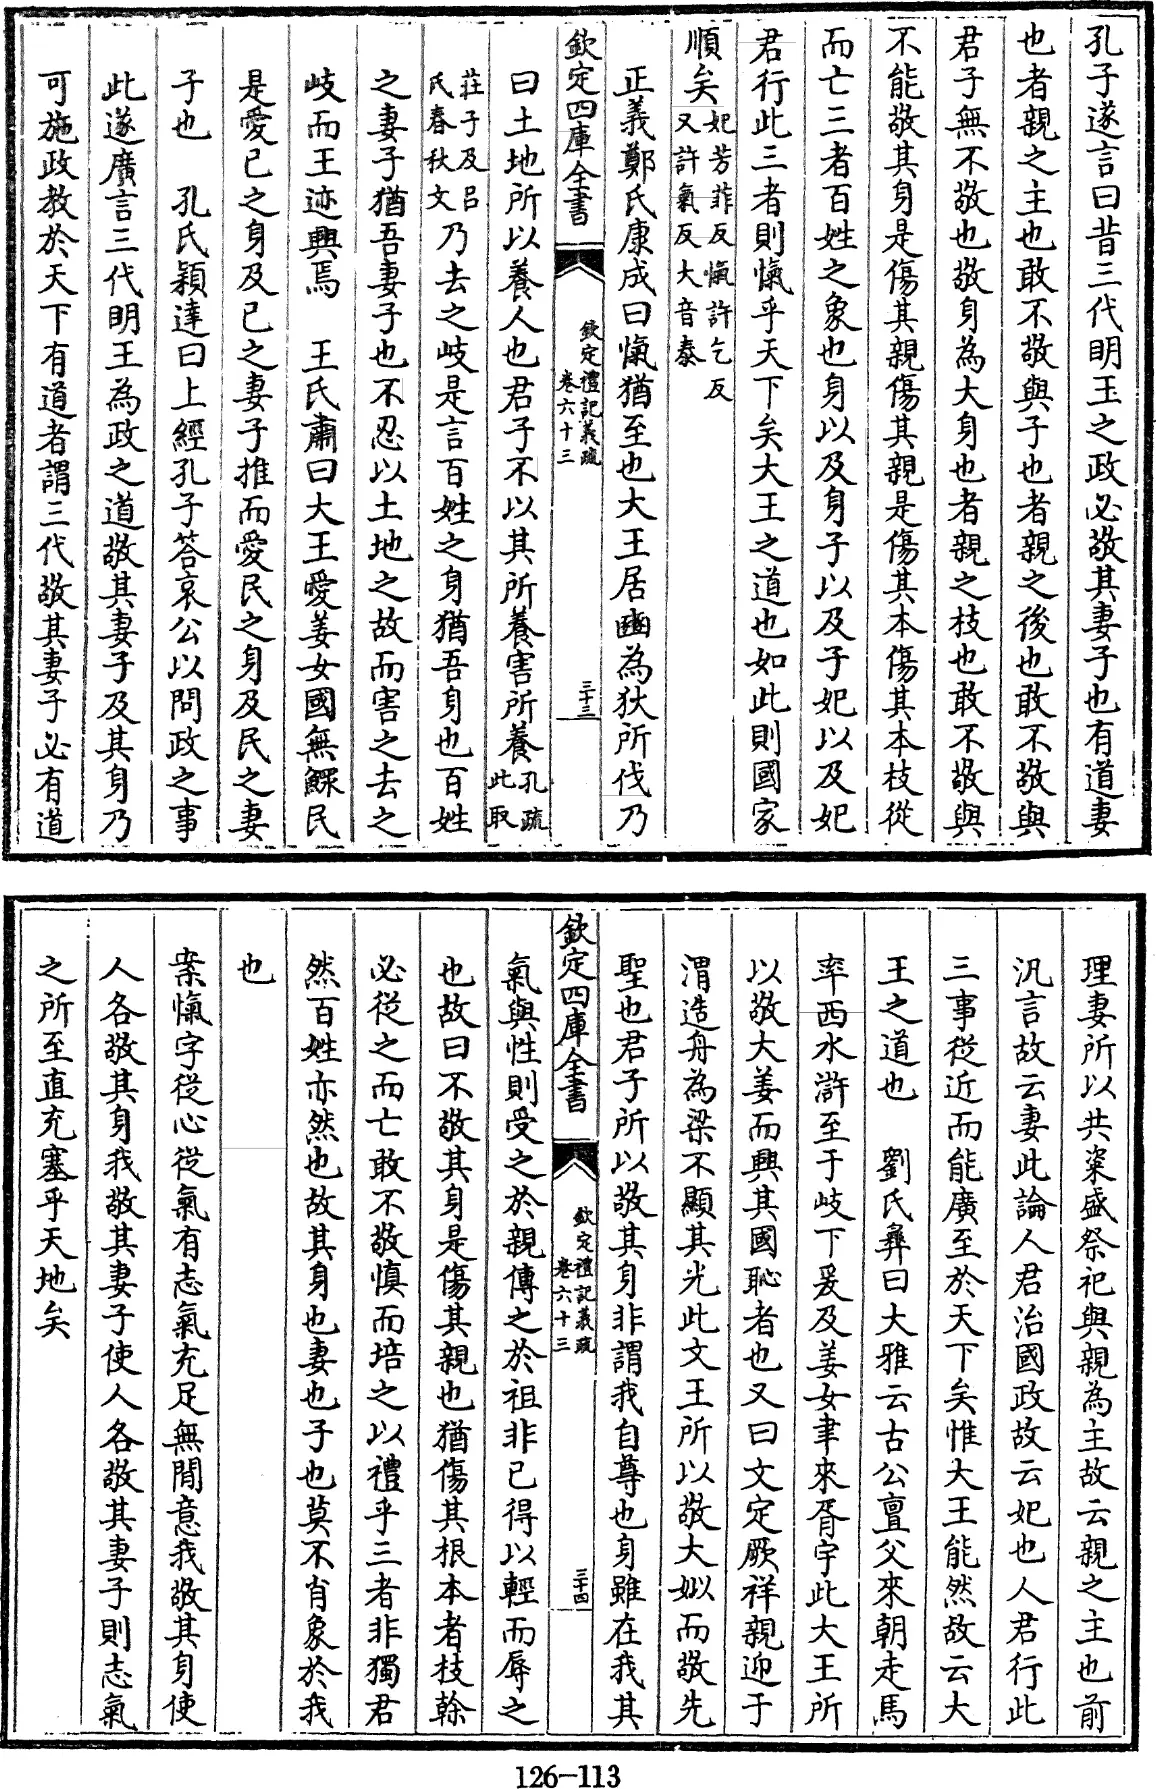 孔子遂言曰昔三代明王之政必敬其妻子也有道妻
也者親之主也敢不敬與子也者親之後也敢不敬與
君子無不敬也敬身為大身也者親之枝也敢不敬與
不能敬其身是傷其親傷其親是傷其本傷其本枝從
而亡三者百姓之象也身以及身子以及子妃以及妃
君行此三者則愾乎天下矣大王之道也如此則國家
順矣妃芳菲反愾許乞反
又許氣反大音泰
正義鄭氏康成曰愾猶至也大王居豳為狄所伐乃
欽定四庫全書
欽定禮記義疏
卷六十三
三十三
曰土地所以養人也君子不以其所養害所養孔疏
此取
莊子及呂
氏春秋文乃去之岐是言百姓之身猶吾身也百姓
之妻子猶吾妻子也不忍以土地之故而害之去之
岐而王迹興焉　王氏肅曰大王愛姜女國無鰥民
是愛已之身及已之妻子推而愛民之身及民之妻
子也　孔氏穎達曰上經孔子答哀公以問政之事
此遂廣言三代明王為政之道敬其妻子及其身乃
可施政教於天下有道者謂三代敬其妻子必有道
理妻所以共粢盛祭祀與親為主故云親之主也前
汎言故云妻此論人君治國政故云妃也人君行此
三事從近而能廣至於天下矣惟大王能然故云大
王之道也　劉氏彝曰大雅云古公亶父來朝走馬
率西水滸至于岐下爰及姜女聿來胥宇此大王所
以敬大姜而興其國恥者也又曰文定厥祥親迎于
渭造舟為梁不顯其光此文王所以敬大姒而敬先
聖也君子所以敬其身非謂我自尊也身雖在我其
欽定四庫全書
欽定禮記義疏
卷六十三
三十四
氣與性則受之於親傳之於祖非已得以輕而辱之
也故曰不敬其身是傷其親也猶傷其根本者枝榦
必從之而亡敢不敬慎而培之以禮乎三者非獨君
然百姓亦然也故其身也妻也子也莫不肖象於我
也
案愾字從心從氣有志氣充足無間意我敬其身使
人各敬其身我敬其妻子使人各敬其妻子則志氣
之所至直充塞乎天地矣
126-113